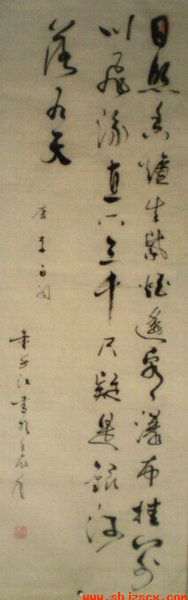 日照香爐生紫煙遙看瀑布挂前
川飛流直下三千尺疑是銀河
落九天
唐李白
江書於
www.shizscx.com